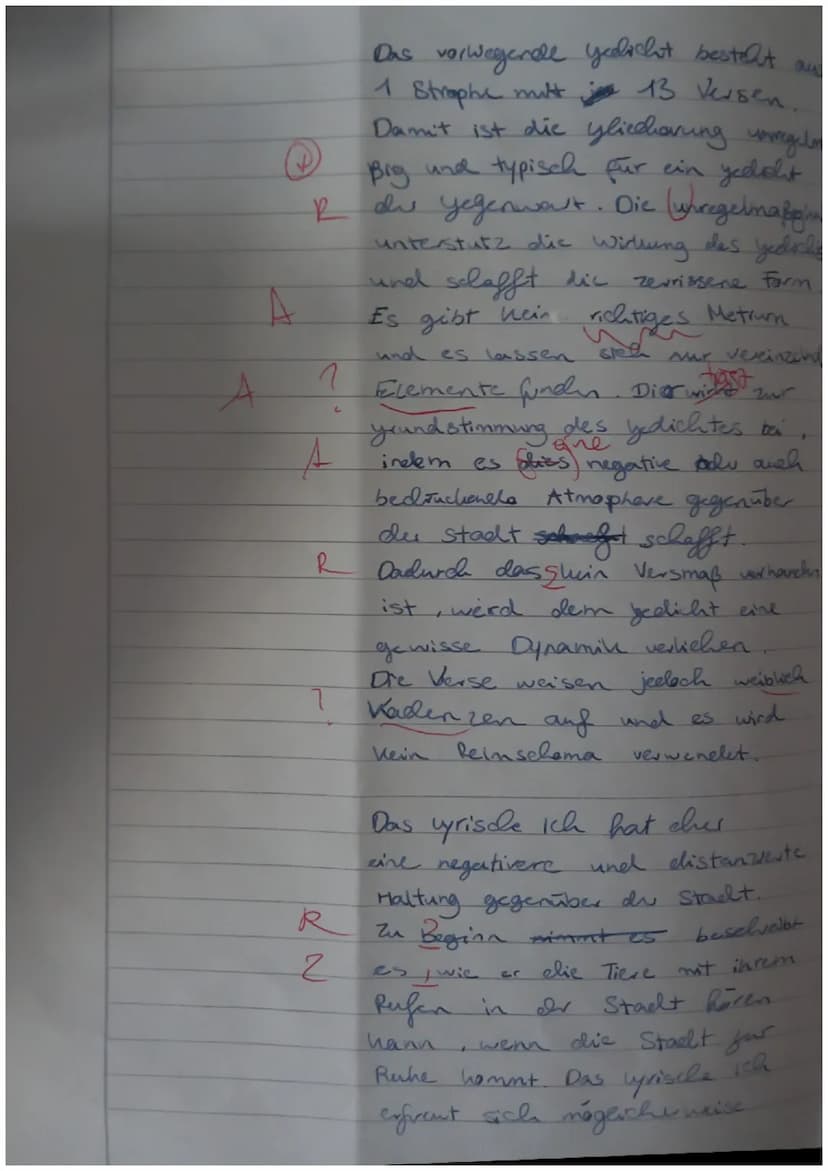 Das vorwegende Gedicht besteht aus
1 Strophe mitt 13 Versen.
Damit ist die Gliederung unregelm
ßig und typisch für ein Gedicht
R der Gegenwart. Die Unregelmäßig
unterstutz die Wirkung des Gedichts
und schafft die zerrissene Form
A Es gibt kein richtiges Metrum
und es lassen sich nur vereinzelnd
A ? Elemente finden. Dies trägt zur
Grundstimmung des Gedichtes bei,
A indem es (dies) eine negative oder auch
bedrückende Atmosphere gegenüber
der Stadt schafft.
R Dadurch dass kein Versmaß vorhanden
ist, werd dem Gedicht eine
gewisse Dynamik verliehen.
Die Verse weisen jedoch weiblich
? Kadenzen auf und es wird
kein Reimschema verwendet.
Das lyrische Ich hat eher
eine negativere und distanzierte
Haltung gegenüber der Stadt.
R Zu Beginn nimmt es beschreibt
Z es, wie er die Tiere mit ihrem
Rufen in der Stadt hören
kann, wenn die Stadt zur
Ruhe kommt. Das lyrische Ich
erfreut sich möglicherweise